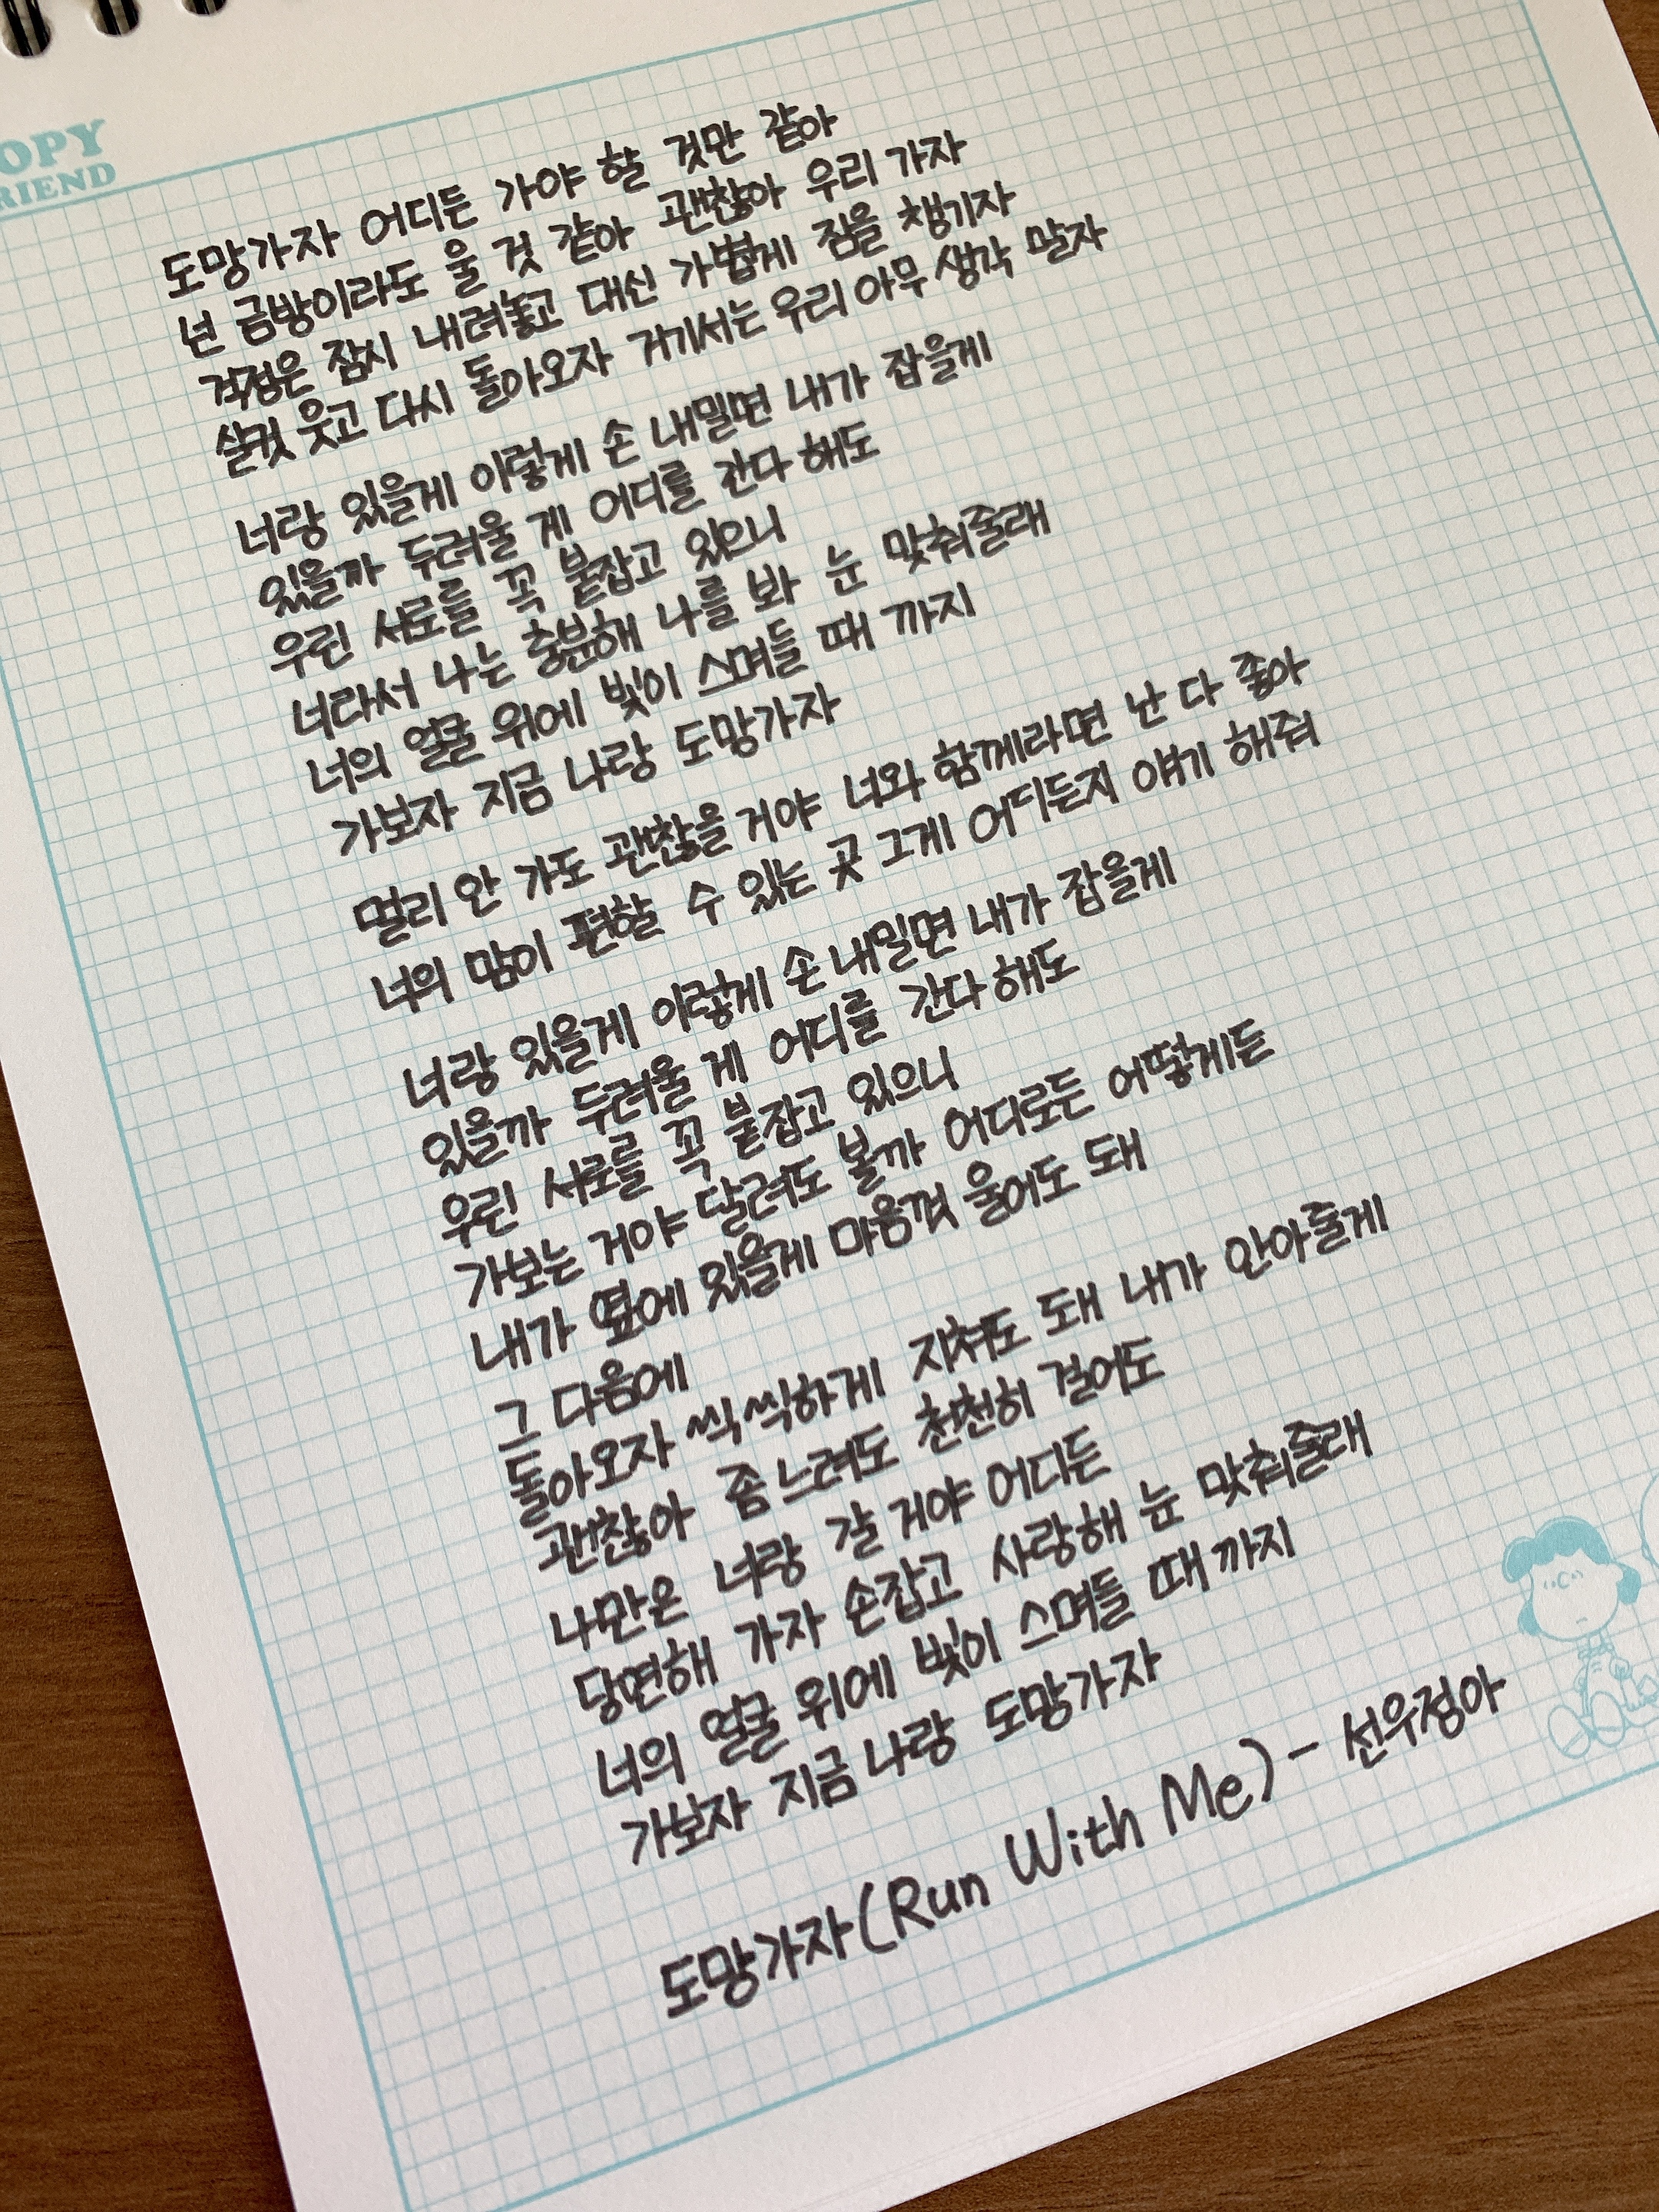 OPY
RIEND
도망가자 어디든 가야 할 것만 같아
넌 금방이라도 울 것 같아 괜찮아 우리 가자
걱정은 잠시 내려놓고 대신 가볍게 짐을 챙기자
실컷 웃고 다시 돌아오자 거기서는 우리 아무 생각 말자
너랑 있을게 이렇게 손 내밀면 내가 잡을게
있을까 두려울 게 어디를 간다 해도
우린 서로를 꼭 붙잡고 있으니
너라서 나는 충분해 나를 봐 눈 맞춰줄래
너의 얼굴 위에 빛이 스며들 때 까지
가보자 지금 나랑 도망가자
멀리 안 가도 괜찮을 거야 너와 함께라면 난 다 좋아
너의 맘이 편할 수 있는 곳 그게 어디든지 얘기 해줘
너랑 있을게 이렇게 손 내밀면 내가 잡을게
있을까 두려울 게 어디를 간다 해도
우린 서로를 꼭 붙잡고 있으니
가보는 거야 달려도 볼까 어디로든 어떻게든
내가 옆에 있을게 마음껏 울어도 돼
그 다음에
돌아오자 씩씩하게 지쳐도 돼 내가 안아줄게
괜찮아 좀 느려도 천천히 걸어도
나만은 너랑 갈 거야 어디든
당연해 가자 손잡고 사랑해 눈 맞춰줄래
너의 얼굴 위에 빛이 스며들 때 까지
가보자 지금 나랑 도망가자
도망가자(Run With Me) - 선우정아